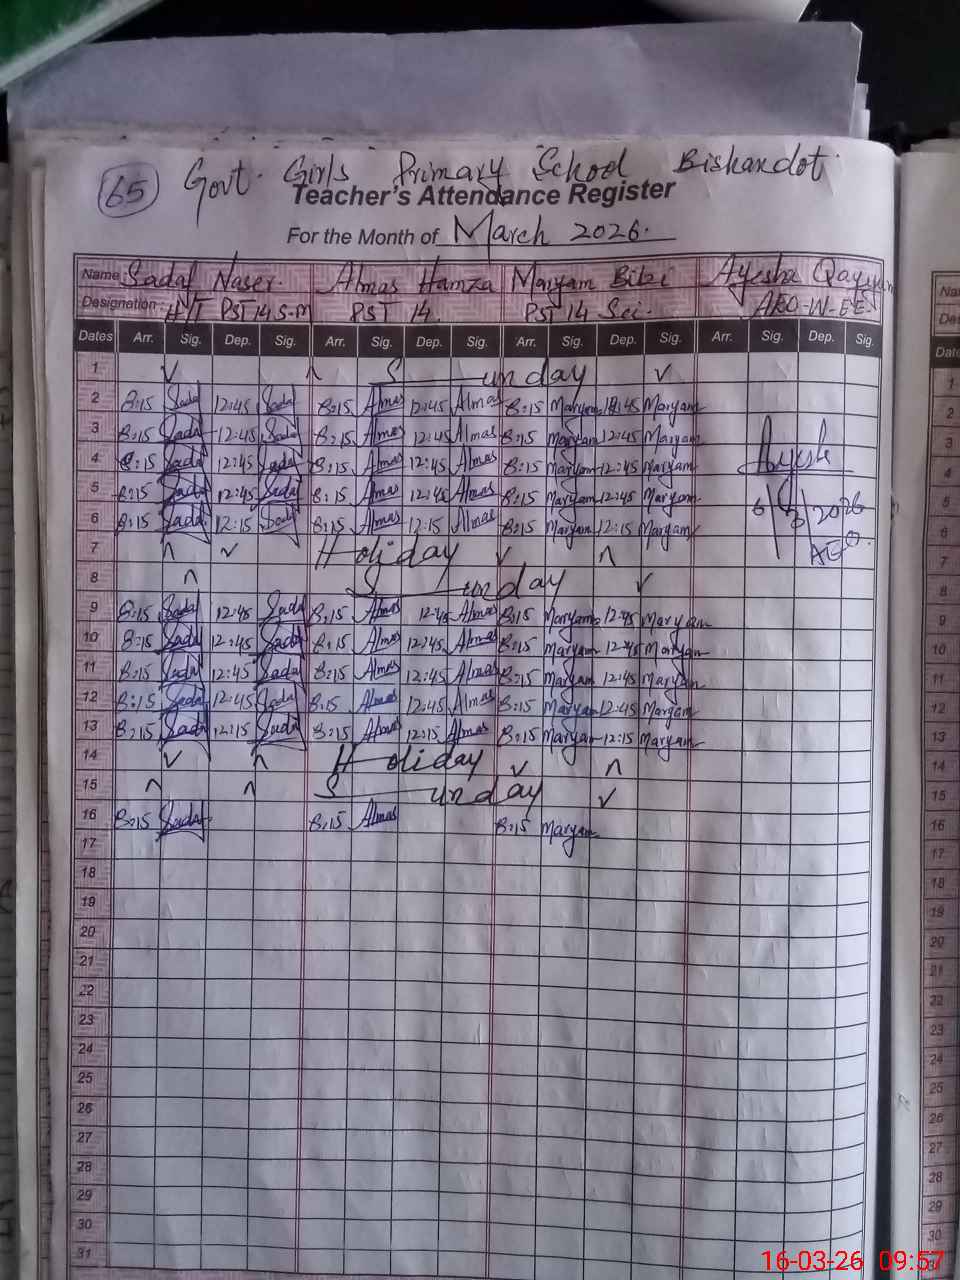 65 Govt. Girls Primary School Biskandot.
Teacher's Attendance Register
For the Month of March 2026.
Name Sadaf Naser. Almas Hamza Maryam Bibi Ayesha Qayyum
Designation : H/T PST 14 S-M PST 14. PST 14 Sci. W-EE
Dates Arr. Sig. Dep. Sig. Arr. Sig. Dep. Sig. Arr. Sig. Dep. Sig. Arr. Sig. Dep. Sig.
1 Sunday
2 8:15 Sadaf 12:45 Sadaf 8:15 Almas 12:45 Almas 8:15 Maryam 12:45 Maryam
3 8:15 Sadaf 12:45 Sadaf 8:15 Almas 12:45 Almas 8:15 Maryam 12:45 Maryam
4 8:15 Sadaf 12:45 Sadaf 8:15 Almas 12:45 Almas 8:15 Maryam 12:45 Maryam Ayesha
5 8:15 Sadaf 12:45 Sadaf 8:15 Almas 12:45 Almas 8:15 Maryam 12:45 Maryam
6 8:15 Sadaf 12:15 Sadaf 8:15 Almas 12:15 Almas 8:15 Maryam 12:15 Maryam 6/3/2026
7 Holiday AEO.
8 Sunday
9 8:15 Sadaf 12:45 Sadaf 8:15 Almas 12:45 Almas 8:15 Maryam 12:45 Maryam
10 8:15 Sadaf 12:45 Sadaf 8:15 Almas 12:45 Almas 8:15 Maryam 12:45 Maryam
11 8:15 Sadaf 12:45 Sadaf 8:15 Almas 12:45 Almas 8:15 Maryam 12:45 Maryam
12 8:15 Sadaf 12:45 Sadaf 8:15 Almas 12:45 Almas 8:15 Maryam 12:45 Maryam
13 8:15 Sadaf 12:15 Sadaf 8:15 Almas 12:15 Almas 8:15 Maryam 12:15 Maryam
14 Holiday
15 Sunday
16 8:15 Sadaf 8:15 Almas 8:15 Maryam
17
18
19
20
21
22
23
24
25
26
27
28
29
30
31
16-03-26 09:57